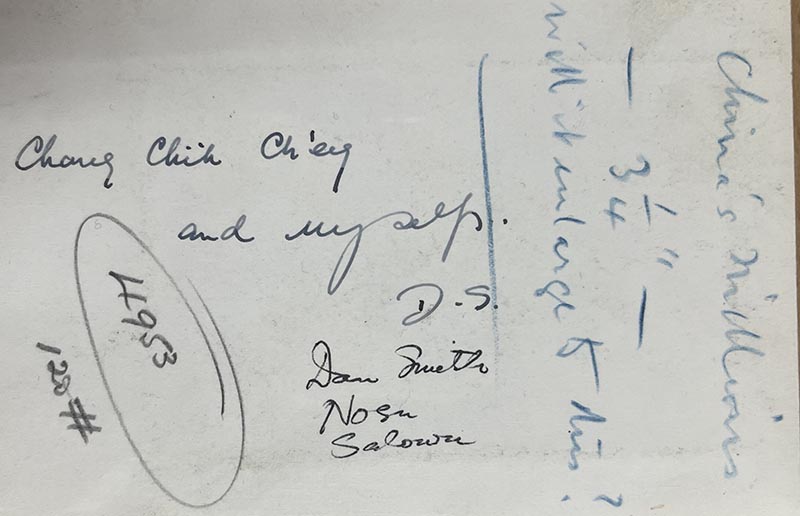 Chang Chih Ch'eng
and myself.
D.S.
Dan Smith
Nosu
Salowu
4953
120#
China's Millions
— 3 1/4" —
will it enlarge to this?